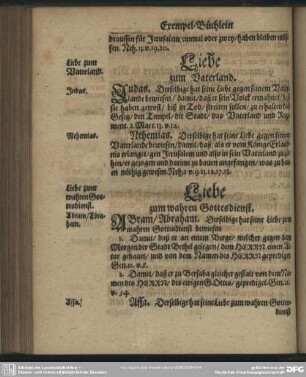 Exempel-Büchlein
draussen für Jerusalem einmal oder zwey/haben bleiben müs-
sen. Neh. 13. v. 19. 20.
Liebe zum
Vaterland.
Liebe
zum Vaterland.
Judas.
Judas. Derselbige hat seine Liebe gegen seinem Vat-
terlande bewiesen / damit, daß er sein Volck ermahnet/ daß
sie haben gewost/ biß in Tod/ streiten sollen, zu erhalten das
Gesetz/ den Tempel, die Stadt/ das Vaterland und Regi-
ment. 2. Macc. 13. v. 14.
Nehemias.
Nehemias. Derselbige hat seine Liebe gegen seinem
Vaterlande bewiesen/damit, daß als er vom König Erlaub-
nis erlanget/ gen Jerusalem und also in sein Vaterland zu zie-
hen/
Liebe zum
wahren Got-
tesdienst.
Liebe
zum wahren Gottesdienst.
Abram/Abra-
ham.
ABram/ Abraham. Derselbige hat seine Liebe zum
wahren Gottesdienst bewiesen
1. Damit, daß er an einem Berge/ welcher gegen dem
Morgen der Stadt Bethel gelegen/ dem HERRN einen Al-
tar gebauet/ und von dem Namen des HERRN geprediget
Gen. 12. v. 8.
2. Damit/ daß er zu Bersaba gleicher gestalt von dem Na-
men des HERRN, des ewigen Gottes/ geprediget. Gen. 21.
v. 34.
Assa.
Assa. Derselbige hat seine Liebe zum wahren Gottes-
dienst